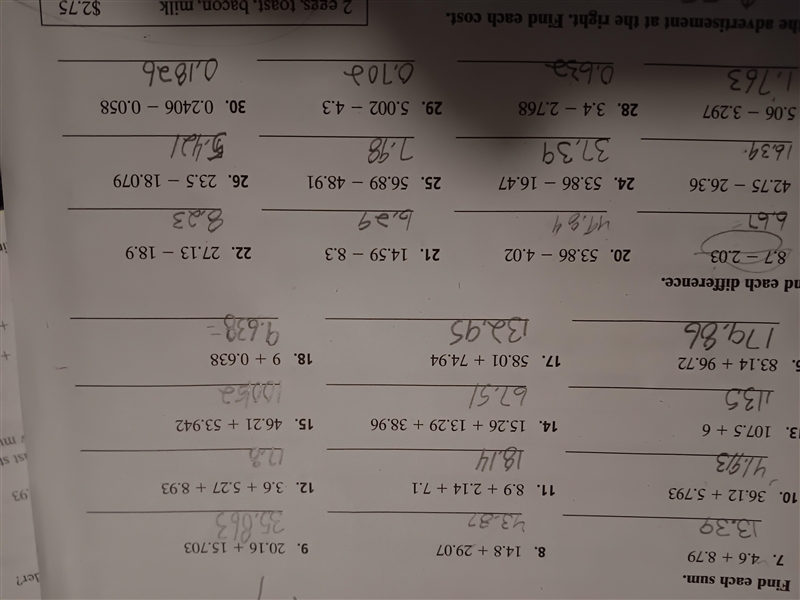 Find each sum.
7. 4.6 + 8.79
8. 14.8 + 29.07
9. 20.16 + 15.703
13.39
43.87
35.863
10. 36.12 + 5.793
11. 8.9 + 2.14 + 7.1
12. 3.6 + 5.27 + 8.93
41.913
18.14
17.8
13. 107.5 + 6
14. 15.26 + 13.29 + 38.96
15. 46.21 + 53.942
113.5
67.51
83.14 + 96.72
17. 58.01 + 74.94
18. 9 + 0.638
179.86
132.95
9.638 =
nd each difference.
8.7 − 2.03
20. 53.86 − 4.02
21. 14.59 − 8.3
22. 27.13 − 18.9
6.67
49.84
6.29
8.23
42.75 − 26.36
24. 53.86 − 16.47
25. 56.89 − 48.91
26. 23.5 − 18.079
16.39
37.39
7.98
5.421
5.06 − 3.297
28. 3.4 − 2.768
29. 5.002 − 4.3
30. 0.2406 − 0.058
1.763
0.632
0.702
0.1826
he advertisement at the right. Find each cost.
2 eggs, toast, bacon, milk $2.75